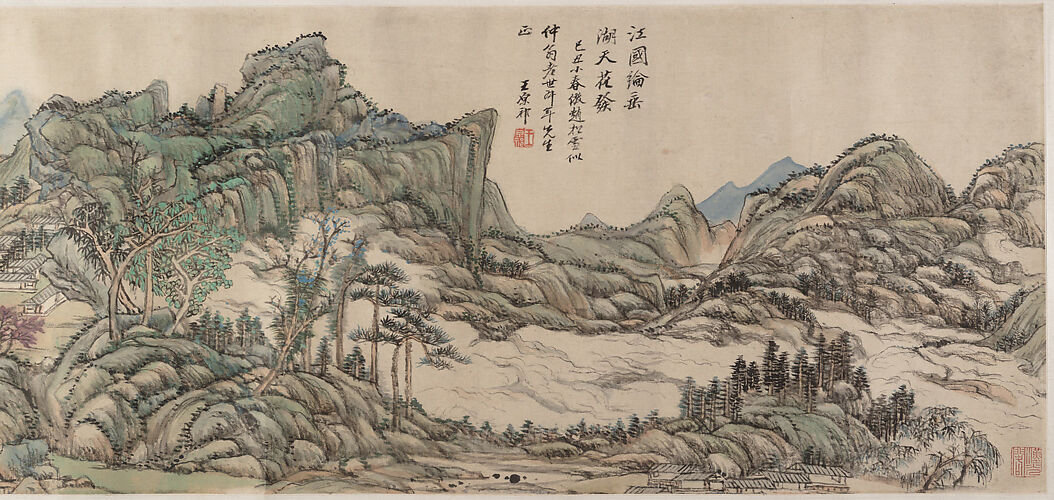 江國綸垂
湖天花發
己丑小春倣趙松雪似
仲翁老世先生
正
王原祁